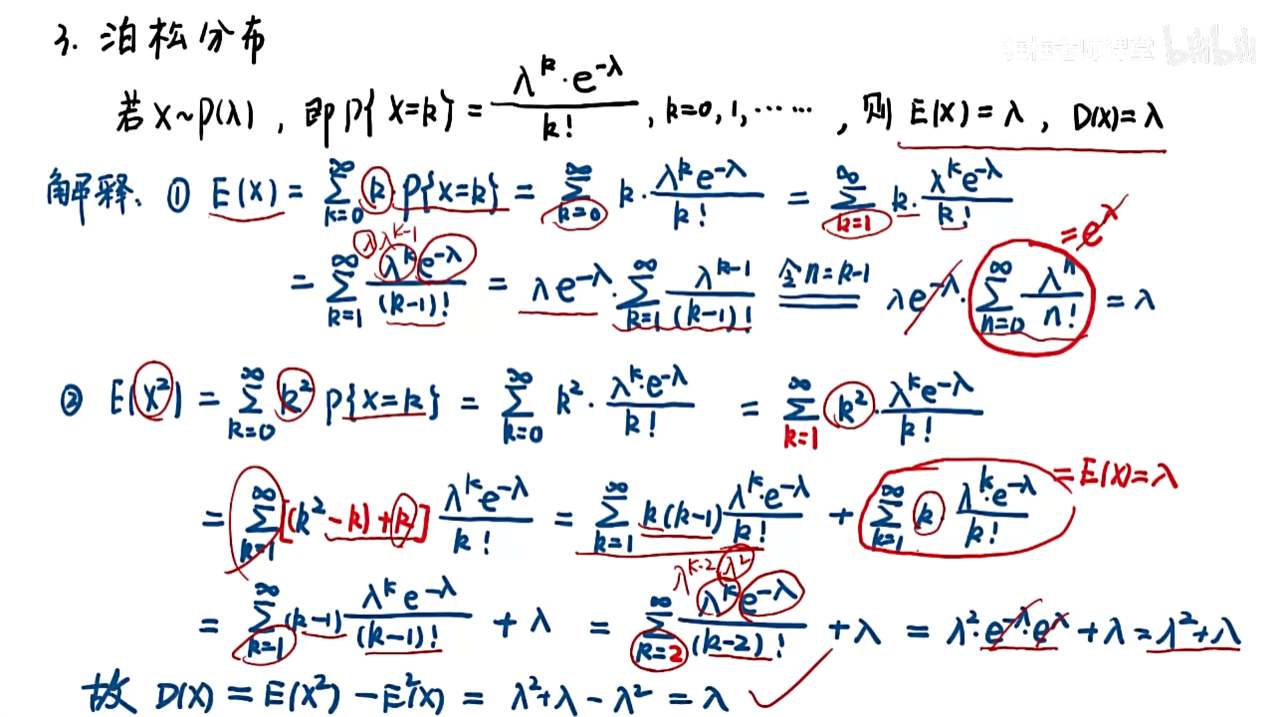 框框老师课堂 bilibili
3. 泊松分布
若 X~P(λ), 即 P{X=k} = λ^k·e^{-λ}/k!, k=0,1,……, 则 E(X)=λ, D(X)=λ
解释. ① E(X) = ∑_{k=0}^{∞} k·P{X=k} = ∑_{k=0}^{∞} k·λ^k e^{-λ}/k! = ∑_{k=1}^{∞} k·λ^k e^{-λ}/k!
λ λ^{k-1} =e^λ
= ∑_{k=1}^{∞} λ^k e^{-λ}/(k-1)! = λe^{-λ}·∑_{k=1}^{∞} λ^{k-1}/(k-1)! 令n=k-1 λe^{-λ}·∑_{n=0}^{∞} λ^n/n! = λ
② E(X²) = ∑_{k=0}^{∞} k² P{X=k} = ∑_{k=0}^{∞} k²·λ^k·e^{-λ}/k! = ∑_{k=1}^{∞} k²·λ^k e^{-λ}/k!
= ∑_{k=1}^{∞} [(k²-k)+k] λ^k·e^{-λ}/k! = ∑_{k=1}^{∞} k(k-1) λ^k·e^{-λ}/k! + ∑_{k=1}^{∞} k λ^k·e^{-λ}/k! =E(X)=λ
λ^{k-2} λ²
= ∑_{k=1}^{∞} (k-1) λ^k e^{-λ}/(k-1)! + λ = ∑_{k=2}^{∞} λ^k e^{-λ}/(k-2)! + λ = λ²·e^{-λ}·e^λ + λ = λ²+λ
故 D(X) = E(X²) - E²(X) = λ²+λ-λ² = λ